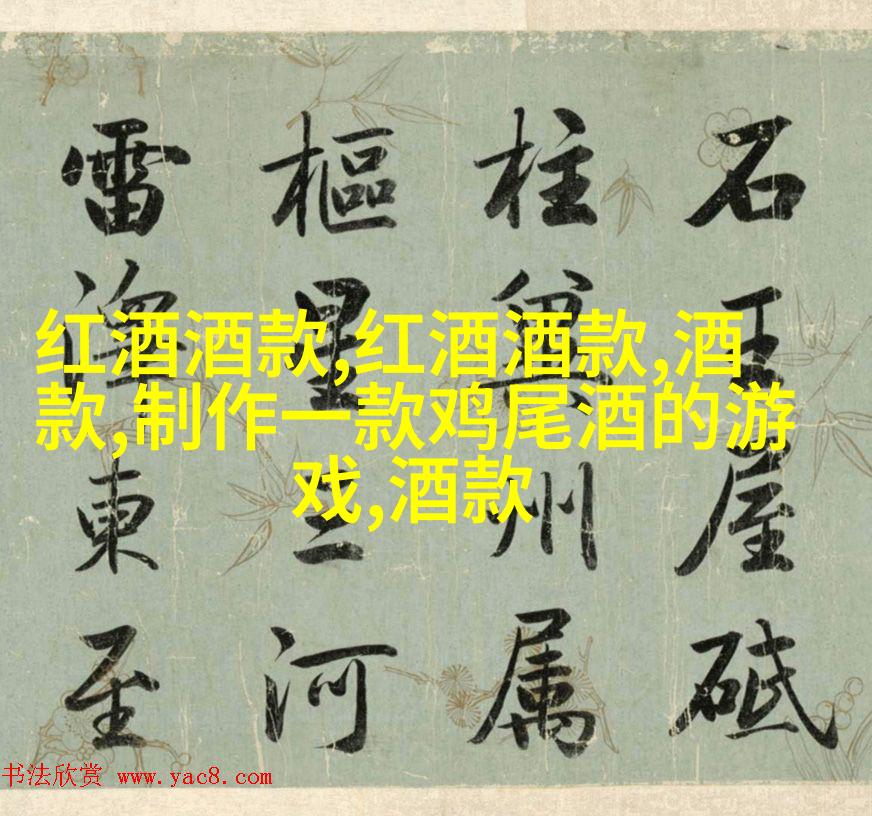 石王屋砥
柱冀州属
樞星三河
雷東至
红酒酒款,红酒酒款,酒
款,制作一款鸡尾酒的游
戏,酒款
书法欣赏 www.yac8.com